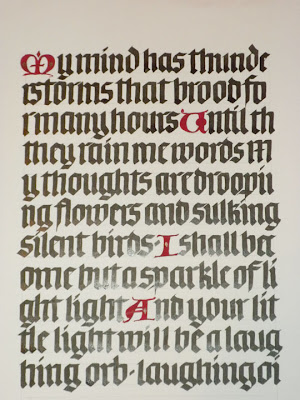 My mind has thunde
rstorms that brood fo
r many hours Until th
they rain me words M
y thoughts are droopii
ng flowers and sulking
silent birds I shall bec
ome but a sparkle of li
ght light And your lit
tle light will be a laug
hing orb-laughing oi